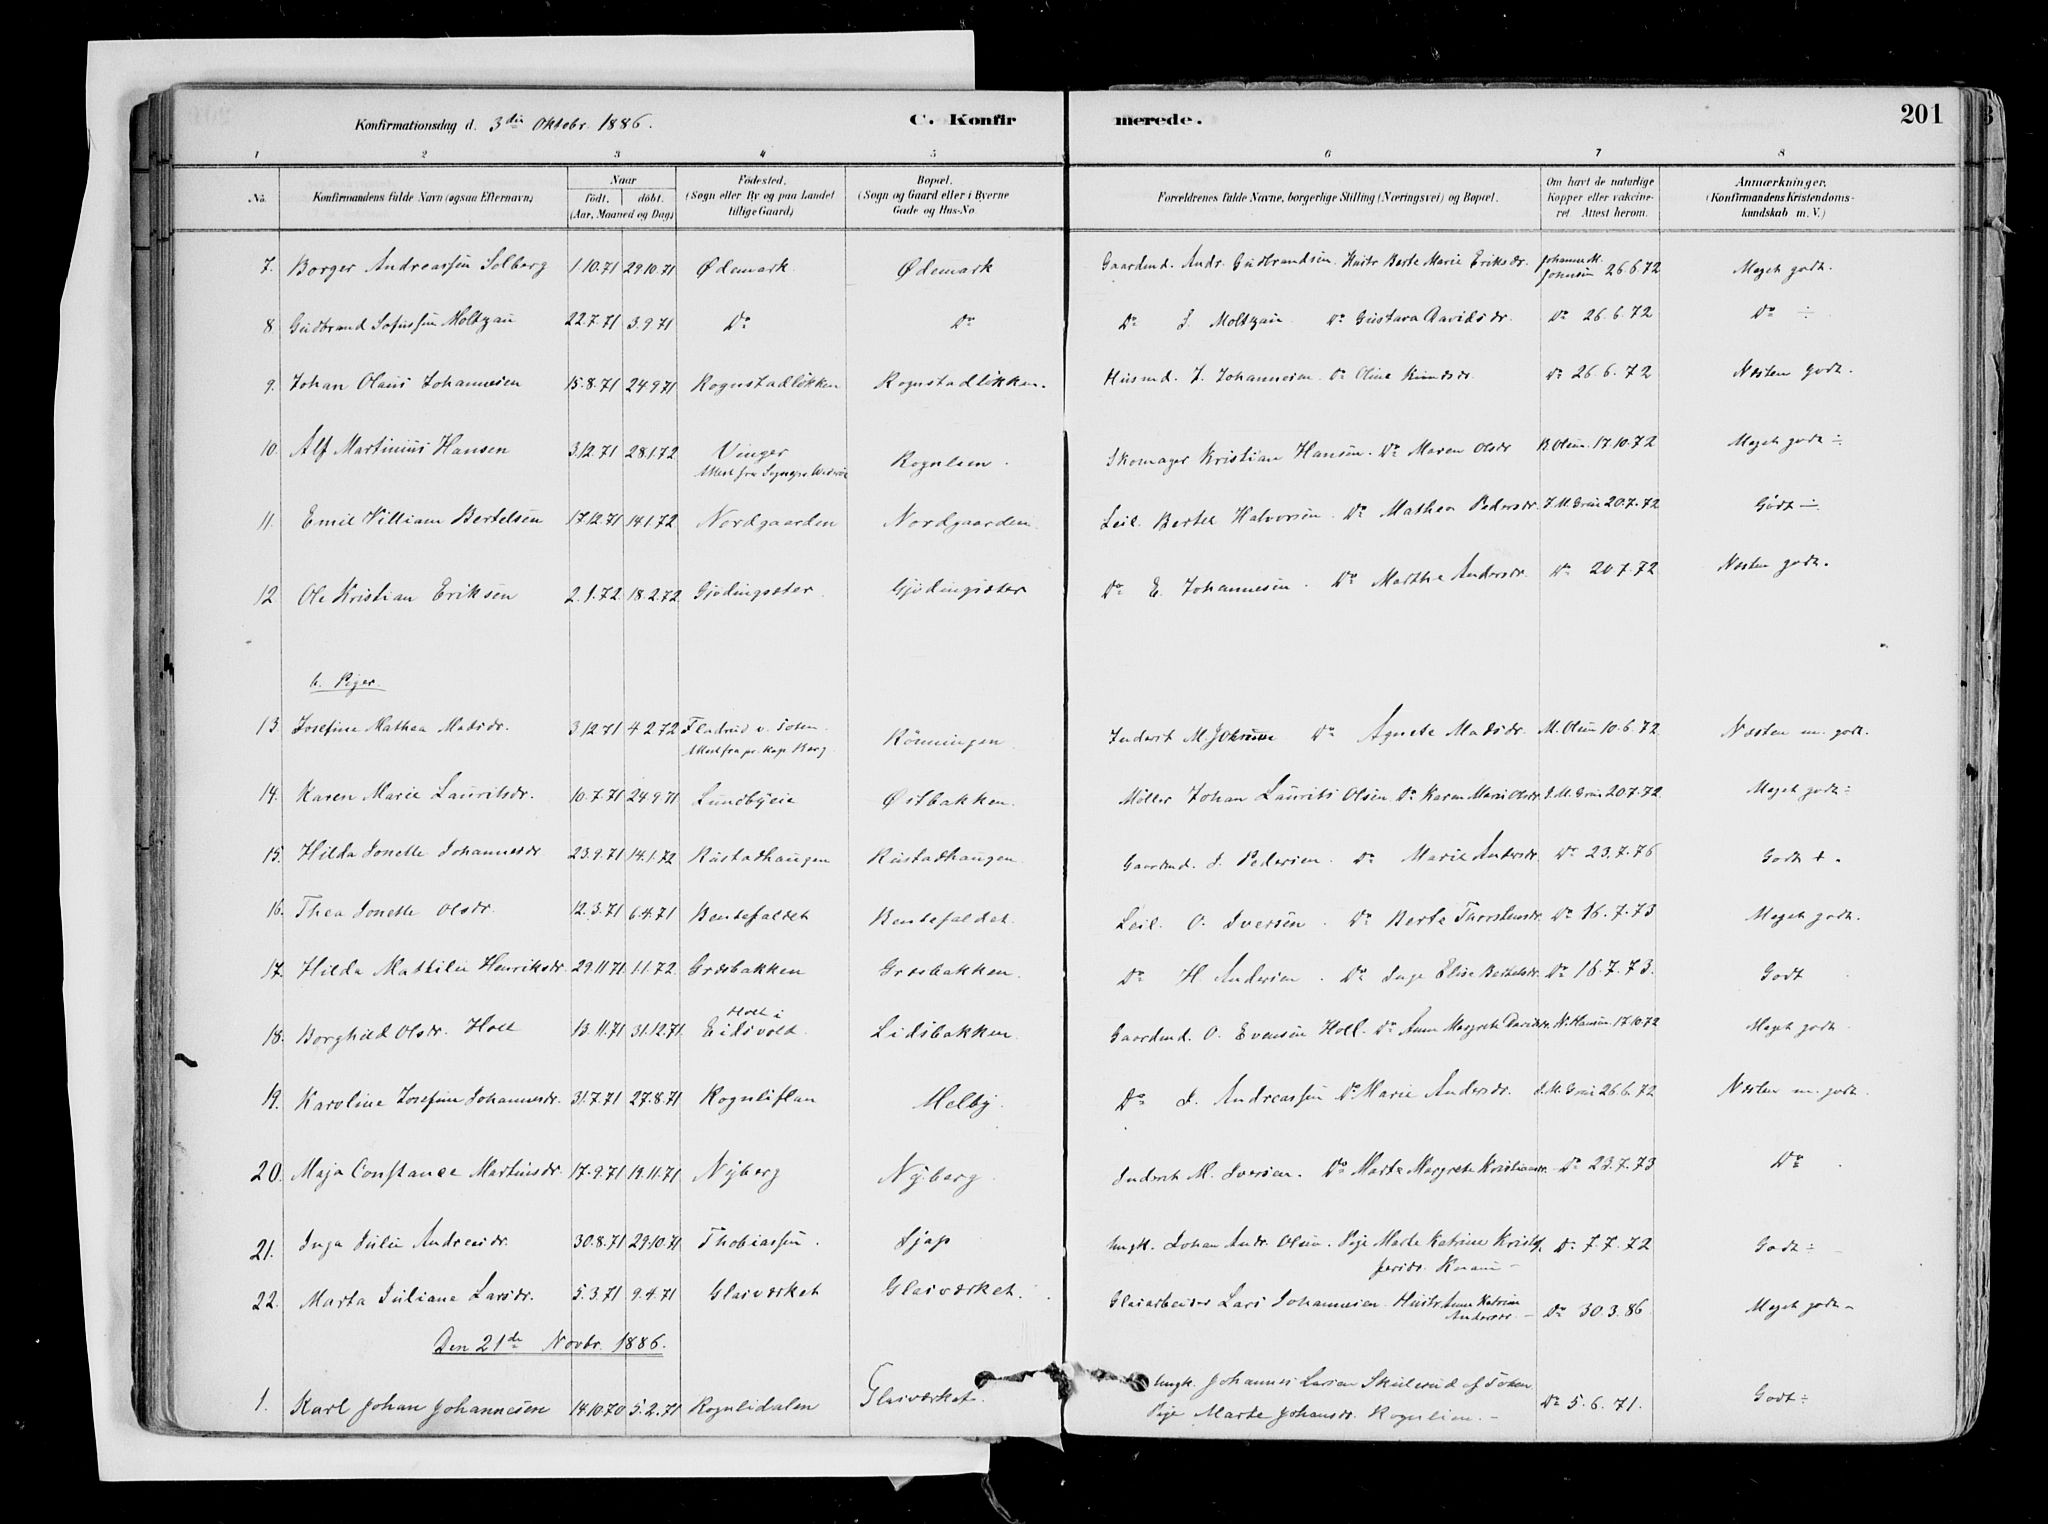 Konfirmationsdag d. 3die Oktobr. 1886. C. Konfirmerede. 201
1 2 3 4 5 6 7 8
No. Konfirmandens fulde Navn (ogsaa Efternavn) Naar født. døbt. (Aar, Maaned og Dag) Fødested. (Sogn eller By og paa Landet tillige Gaard) Bopæl. (Sogn og Gaard eller i Byerne Gade og Hus-No. Forældrenes fulde Navne, borgerlige Stilling (Næringsvei) og Bopæl. Om havt de naturlige Kopper eller vakcineret. Attest herom. Anmærkninger. (Konfirmandens Kristendomskundskab m. V.)
7. Borger Andreassen Solberg 1.10.71 29.10.71 Ødemark Ødemark Gaardmd. Andr. Gudbrandsen. Hustr. Berte Marie Eriksdr. Johannes M. Johnsen 26.6.72 Meget godt.
8. Gudbrand Sofussen Moltzau 22.7.71 3.9.71 Do Do Do S. Moltzau Do Gustava Davidsdr. Do 26.6.72 Do ÷
9. Johan Olaus Johannesen 15.8.71 24.9.71 Rognstadløkken Rognstadløkken. Husmd. J. Johannesen. Do Oline Knudsdr. Do 26.6.72 Næsten godt.
10. Alf Martinius Hansen 3.12.71 28.1.72 Vinger Attest fra Sognepr. Rognlien. Skomager Kristian Hansen. Do Maren Olsdr B. Olsen 17.10.72 Meget godt ÷
11. Emil William Bertelsen 17.12.71 14.1.72 Nordgaarden Nordgaarden. Leil. Bertel Halvorsen. Do Mathea Pedersdr. J. M. Grün 20.7.72 Godt ÷
12. Ole Kristian Eriksen 2.1.72. 18.2.72 Gjødingsæter Gjødingsæter Do E. Johannesen. Do Marthe Andersdr. Do 20.7.72 Næsten godt.
b. Piger.
13. Josefine Mathea Madsdr. 3.12.71 4.2.72 Fladrud v. Toten Attest fra pr. Kap. Berg Rønningen Inderst M. Johnsen Do Agnete Madsdr. M. Olsen 10.6.72 Næsten m. godt.
14. Karen Marie Lauritsdr. 10.7.71 24.9.71 Lundbyeie Østbakken. Møller Johan Laurits Olsen. Do Karen Marie Olsdr. J. M. Grün 20.7.72 Meget godt ÷
15. Hilda Jonette Johannesdr 23.9.71 14.1.72 Rustadhaugen Rustadhaugen. Gaardmd. J. Pedersen. Do Marie Andersdr. Do 23.7.76 Godt + .
16. Thea Jonette Olsdr. 12.3.71 6.4.71 Bentefaldet Bentefaldet. Leil. O. Iversen. Do Berte Thorstensdr. Do 16.7.73 Meget godt.
17. Hilda Mathilde Henriksdr. 29.11.71 1.1.72. Græsbakken Græsbakken. Do H. Andersen. Do Inge Elise Bertelsdr. Do 16.7.73. Godt
18. Borghild Olsdr. Holt 13.11.71 31.12.71 Holt i Eidsvold Lidsbakken. Gaardmd. O. Evensen Holt. Do Anne Margrete Davidsdr. N. Hansen 17.10.72 Meget godt
19. Karoline Josefine Johannesdr. 31.7.71 27.8.71 Rognliflan Melby. Do J. Andreassen Do Marie Andersdr. J. M. Grün 26.6.72 Næsten m. godt.
20. Maja Constance Martinsdr. 17.9.71 19.11.71 Nyberg Nyberg. Inderst M. Iversen. Do Marte Margrete Kristiansdr. Do 23.7.73 Do
21. Inga Julie Andreasdr. 30.8.71 29.10.71 Thobiassen. Sjap Ungk. Johan Andr. Olsen. Pige Marte Katrine Kristoffersdr. Do 7.7.72 Godt ÷
22. Marta Juliane Larsdr. 5.3.71 9.4.71 Glasværket Glasværket. Glasarbeider Lars Johannesen. Hustr. Anne Katrine Andersdr. Do 30.3.86. Meget godt
Den 21de Novbr. 1886.
1. Karl Johan Johannesen 14.10.70 5.2.71 Rognlidalen Glasværket. Ungk. Johannes Larsen Skulerud af Toten
Pige Marte Johansdr. Rognlien. Do 5.6.71. Godt ÷